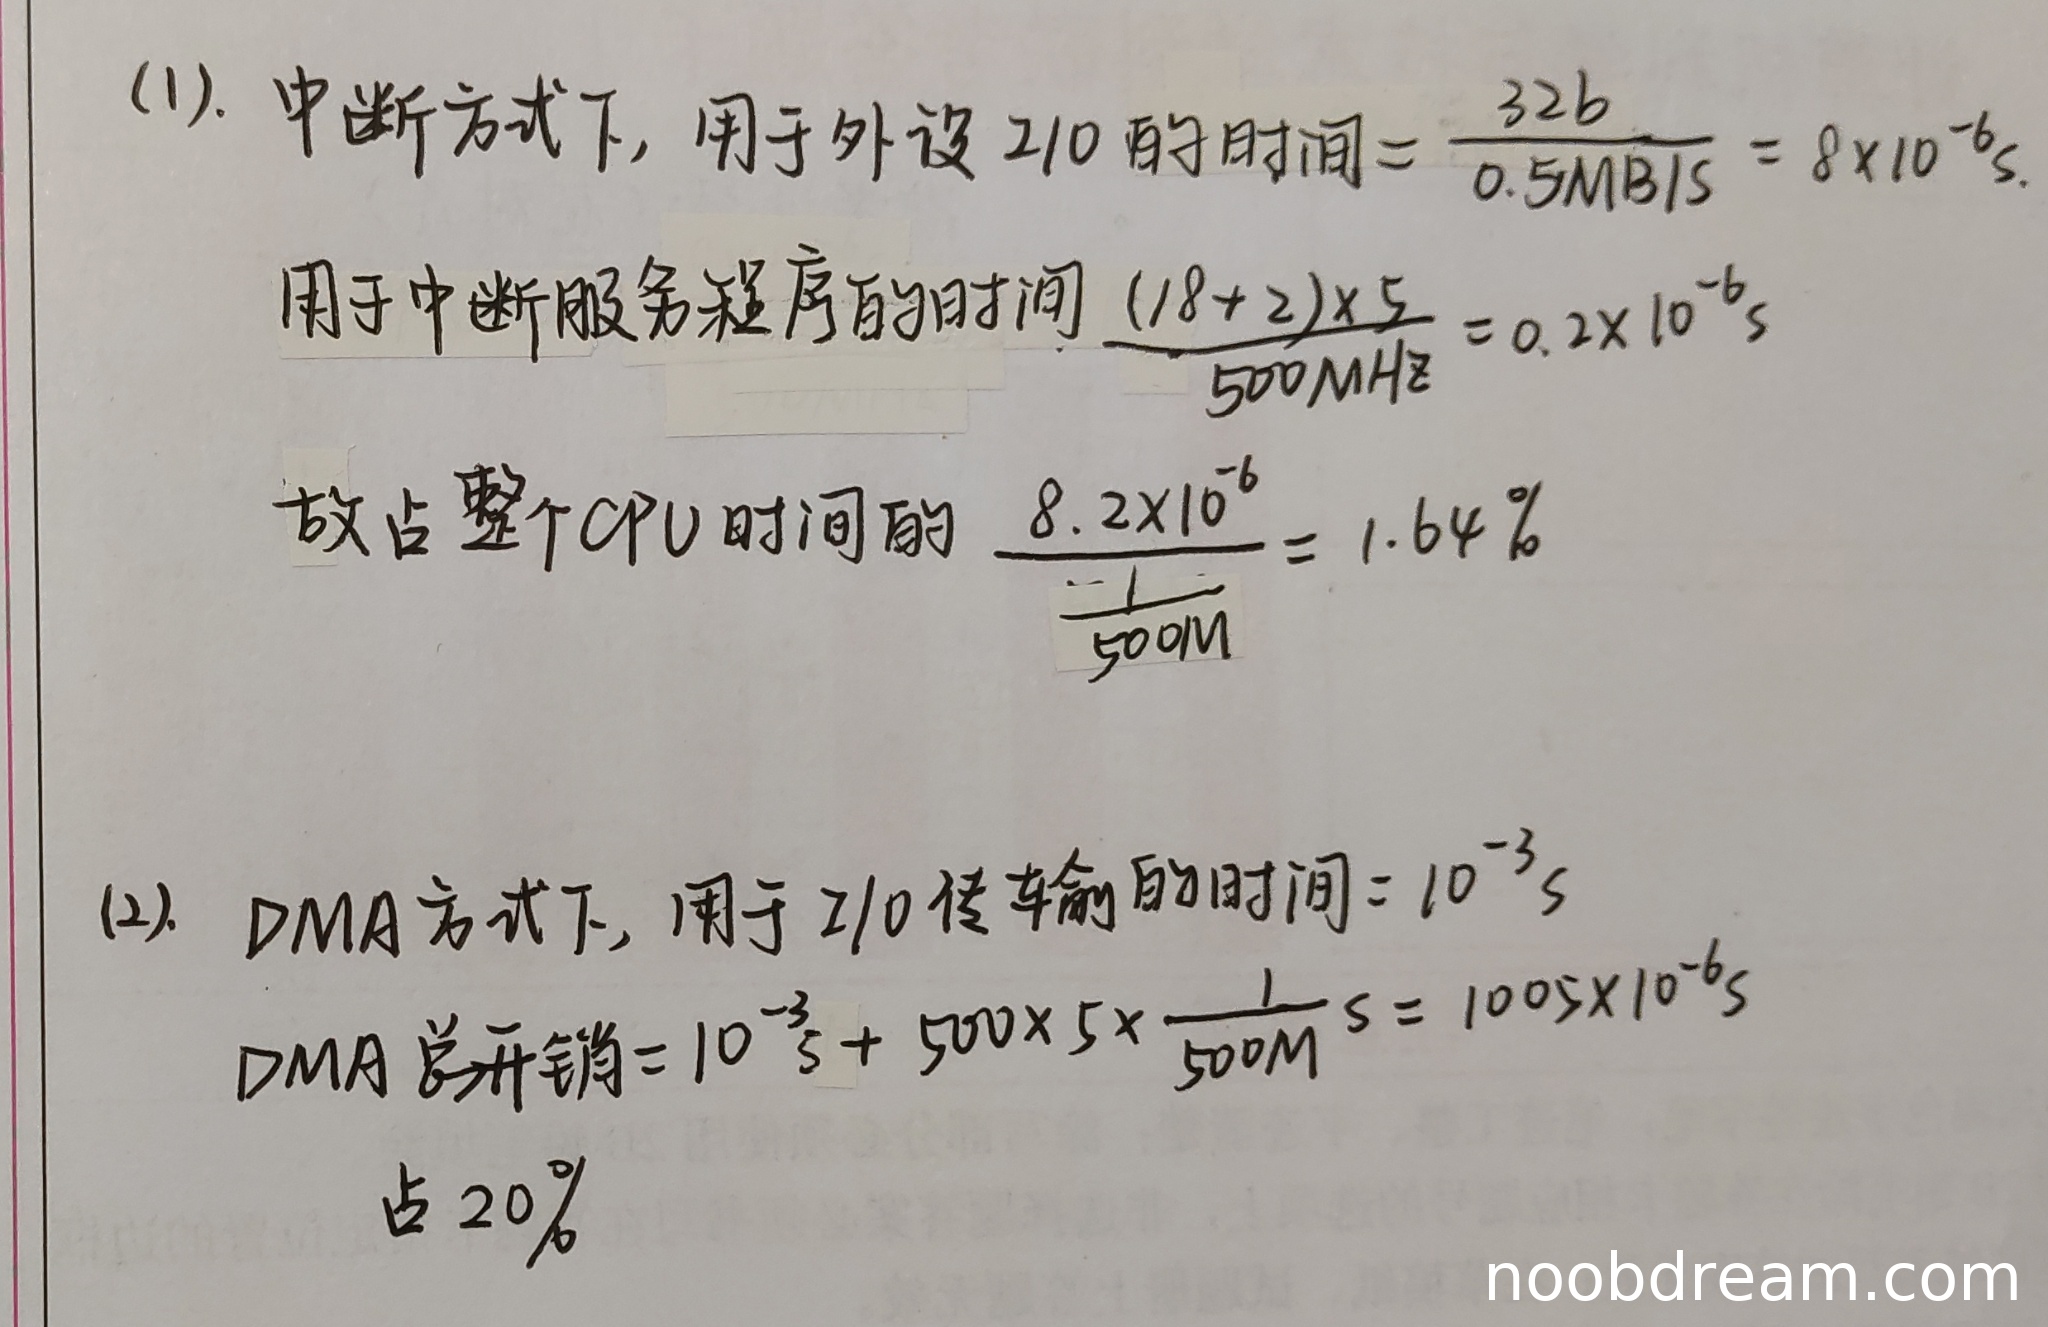 (1). 中断方式下, 用于外设 I/O 的时间 = 32b / 0.5MB/s = 8×10⁻⁶s.
用于中断服务程序的时间 (18+2)×5 / 500MHz = 0.2×10⁻⁶s
故占整个CPU时间的 8.2×10⁻⁶ / (1/500M) = 1.64%
(2). DMA方式下, 用于 I/O 传输的时间 = 10⁻³s
DMA总开销 = 10⁻³s + 500×5×1/500M s = 1005×10⁻⁶s
占 20%
noobdream.com